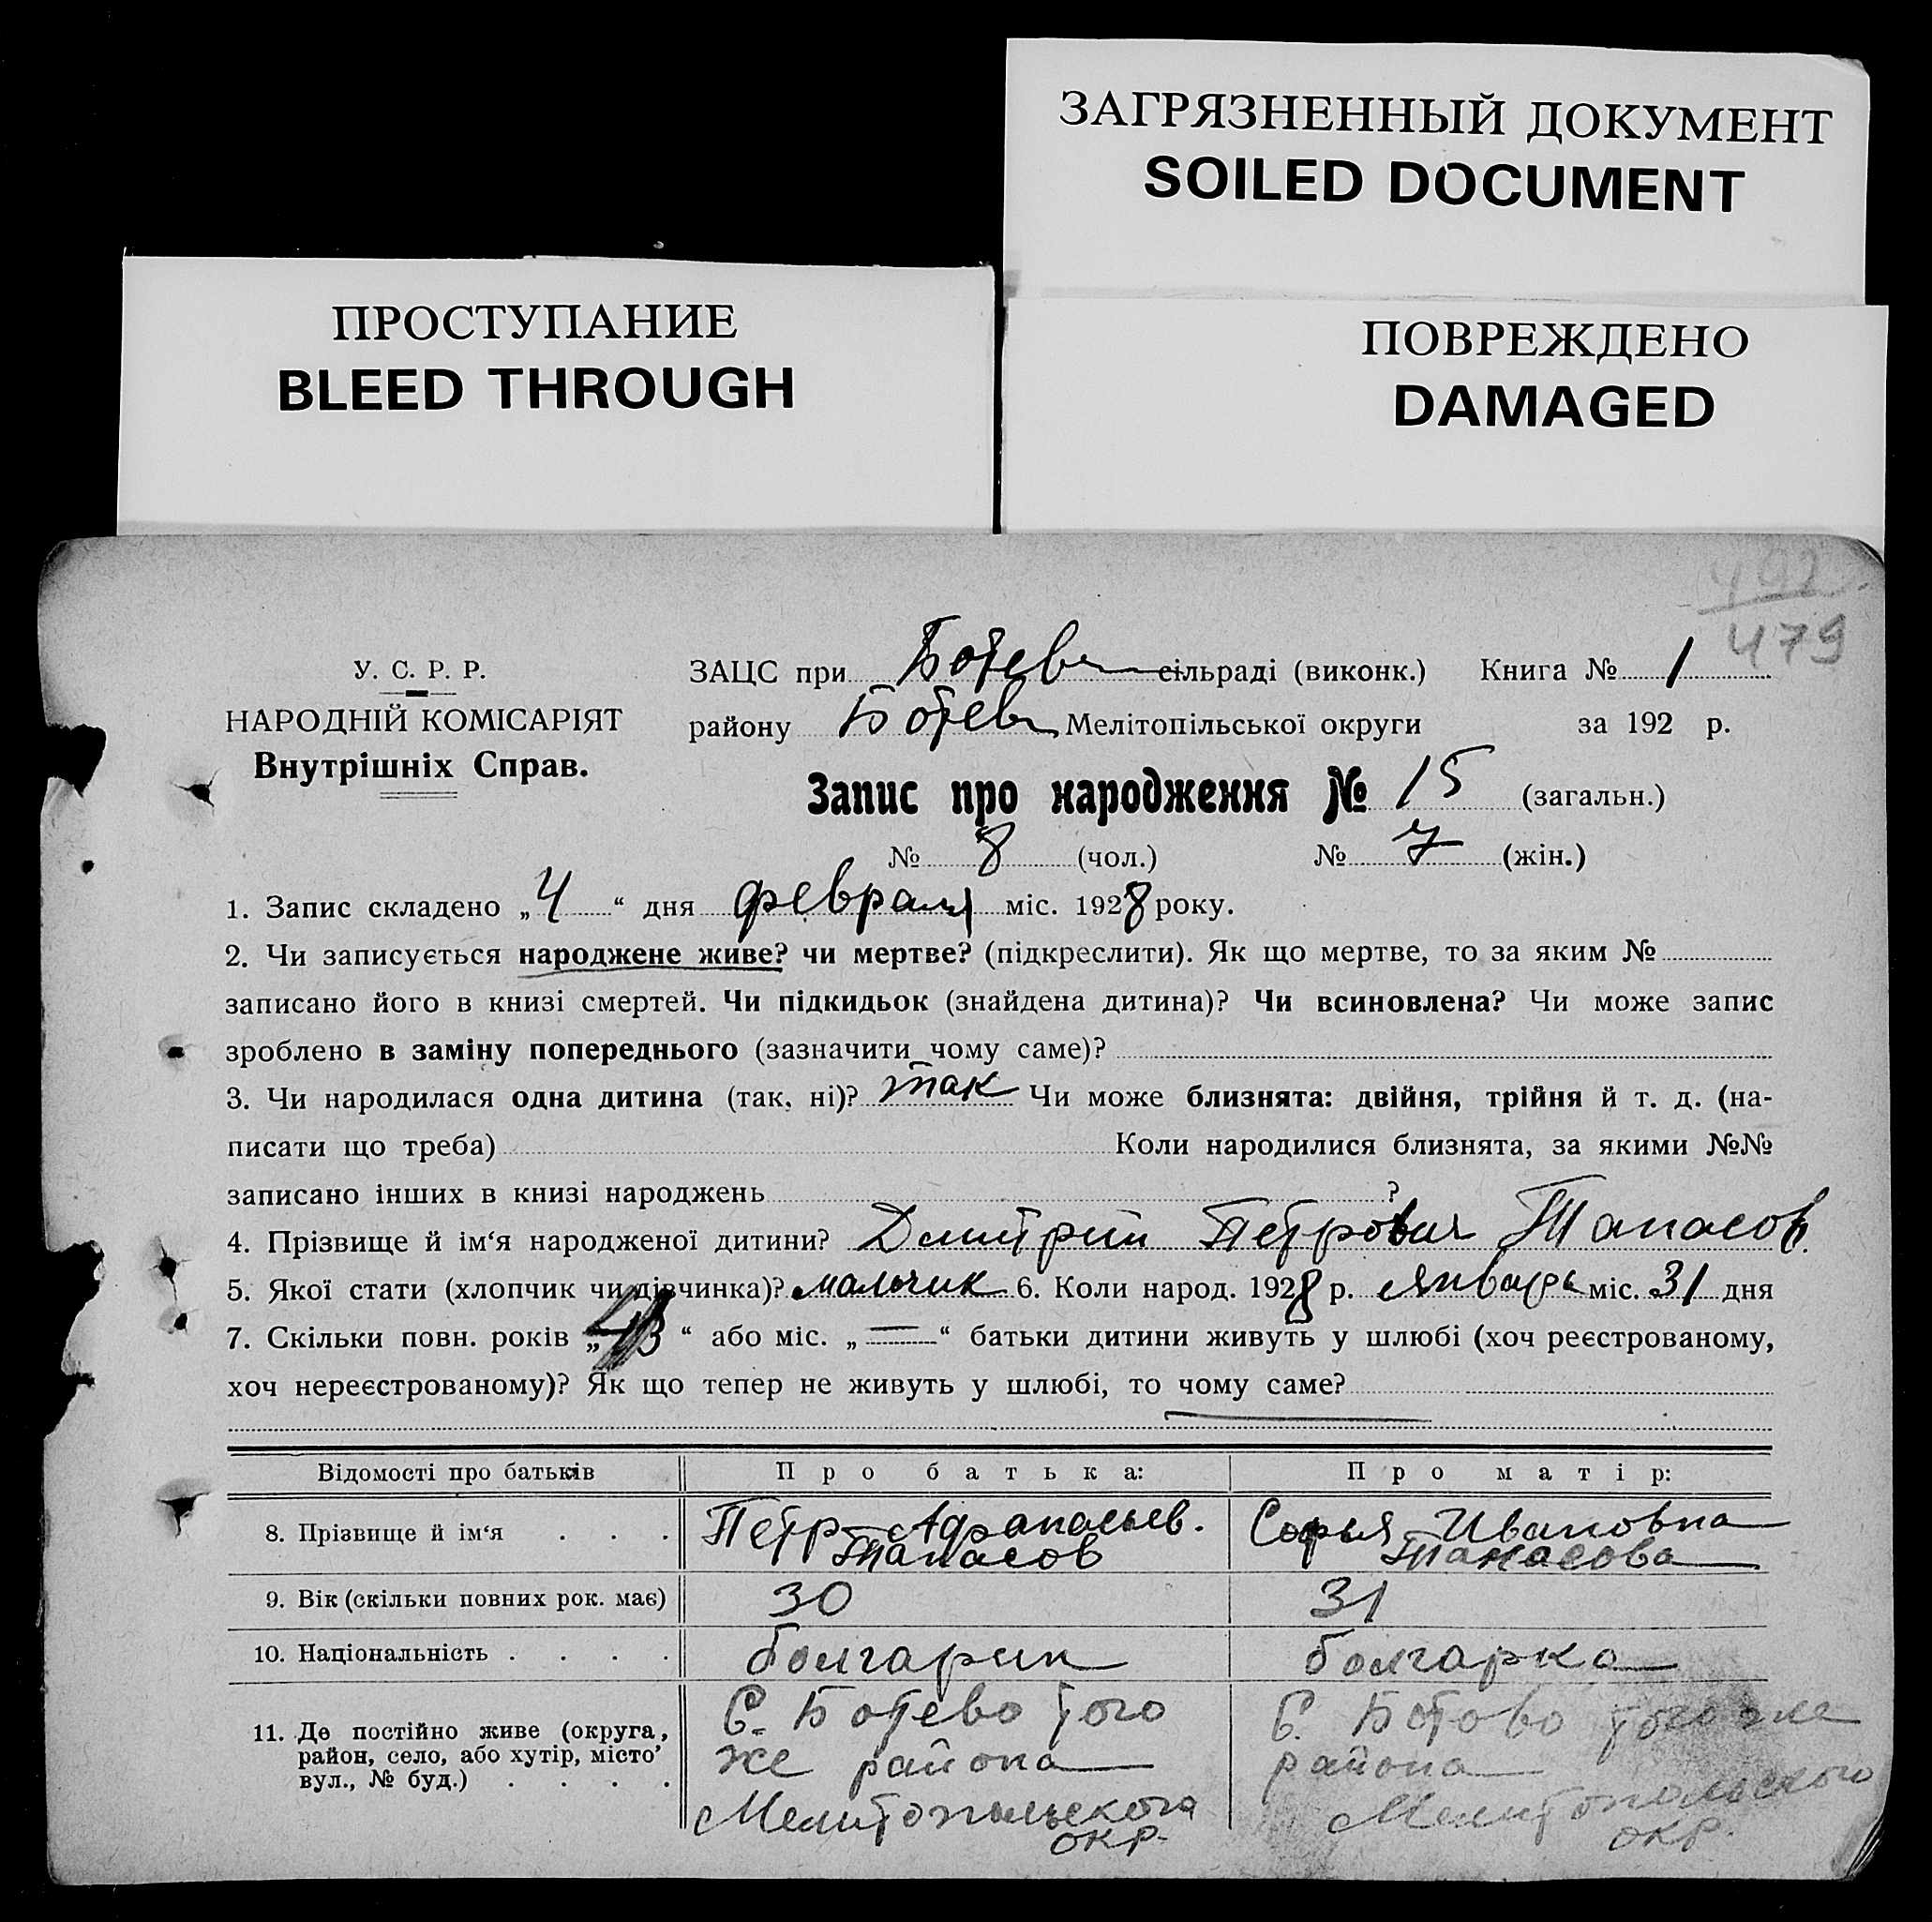 ЗАГРЯЗНЕННЫЙ ДОКУМЕНТ
SOILED DOCUMENT
ПРОСТУПАНИЕ
BLEED THROUGH
ПОВРЕЖДЕНО
DAMAGED
492
479
У. С. Р. Р.
НАРОДНІЙ КОМІСАРІЯТ
Внутрішніх Справ.
ЗАЦС при Ботев сільраді (виконк.) Книга № 1
району Ботев Мелітопільської округи за 192 р.
Запис про народження № 15 (загальн.)
№ 8 (чол.) № 7 (жін.)
1. Запис складено „4“ дня февраля міс. 1928 року.
2. Чи записується народжене живе? чи мертве? (підкреслити). Як що мертве, то за яким №
записано його в книзі смертей. Чи підкидьок (знайдена дитина)? Чи всиновлена? Чи може запис
зроблено в заміну попереднього (зазначити чому саме)?
3. Чи народилася одна дитина (так, ні)? так Чи може близнята: двійня, трійня й т. д. (на-
писати що треба) Коли народилися близнята, за якими №№
записано інших в книзі народжень ?
4. Прізвище й ім‘я народженої дитини? Дмитрий Петрович Танасов.
5. Якої стати (хлопчик чи дівчинка)? мальчик 6. Коли народ. 1928 р. Январь міс. 31 дня
7. Скільки повн. років „ “ або міс. „—“ батьки дитини живуть у шлюбі (хоч реєстрованому,
хоч нереєстрованому)? Як що тепер не живуть у шлюбі, то чому саме?
Відомості про батьків Про батька: Про матір:
8. Прізвище й ім‘я . . . Петр Афанасьев. Софья Ивановна
Танасов Танасова
9. Вік (скільки повних рок. має) 30 31
10. Національність . . . . болгарин болгарка
11. Де постійно живе (округа, С. Ботево того С. Ботово того же
район, село, або хутір, місто же района района
вул., № буд.) . . . . Мелитопольского Мелитопольского
окр. окр.